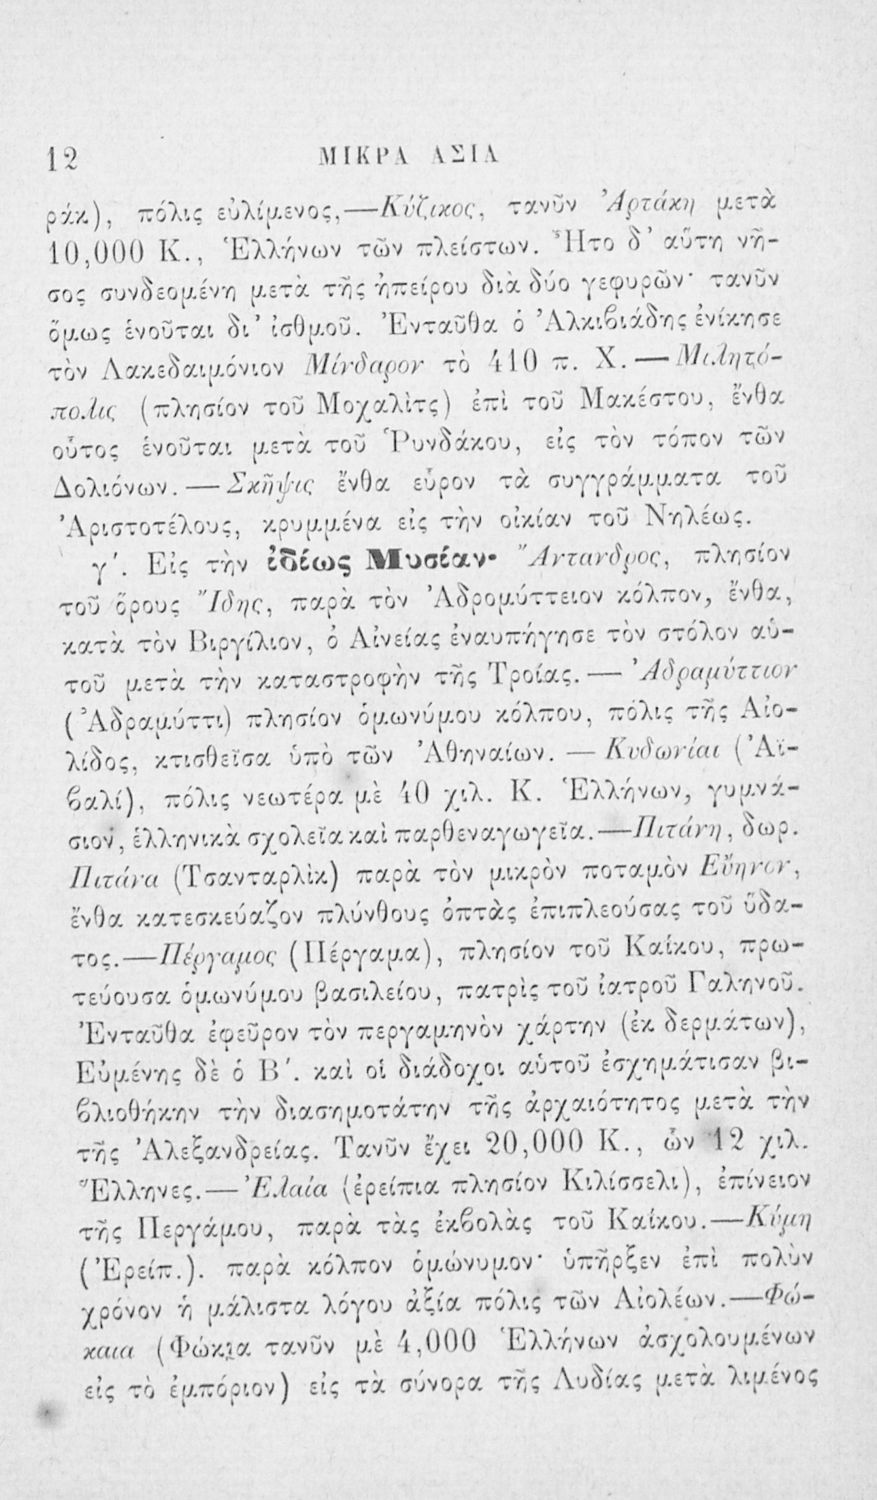 12 ΜΙΚΡΑ ΑΣΙΑ
ράκ), πόλις εὐλίμενος,—Κύζικος, τανῦν Ἀρτάκη μετὰ
10,000 Κ., Ἑλλήνων τῶν πλείστων. Ἦτο δ’ αὕτη νῆ-
σος συνδεομένη μετὰ τῆς ἠπείρου διὰ δύο γεφυρῶν· τανῦν
ὅμως ἑνοῦται δι’ ἰσθμοῦ. Ἐνταῦθα ὁ Ἀλκιβιάδης ἐνίκησε
τὸν Λακεδαιμόνιον Μίνδαρον τὸ 410 π. Χ.—Μιλητό-
πολις (πλησίον τοῦ Μοχαλὶτς) ἐπὶ τοῦ Μακέστου, ἔνθα
οὗτος ἑνοῦται μετὰ τοῦ Ῥυνδάκου, εἰς τὸν τόπον τῶν
Δολιόνων.—Σκῆψις ἔνθα εὗρον τὰ συγγράμματα τοῦ
Ἀριστοτέλους, κρυμμένα εἰς τὴν οἰκίαν τοῦ Νηλέως.
γ΄. Εἰς τὴν ἰδίως Μυσίαν· Ἄντανδρος, πλησίον
τοῦ ὄρους Ἴδης, παρὰ τὸν Ἀδρομύττειον κόλπον, ἔνθα,
κατὰ τὸν Βιργίλιον, ὁ Αἰνείας ἐναυπήγησε τὸν στόλον αὑ-
τοῦ μετὰ τὴν καταστροφὴν τῆς Τροίας.—Ἀδραμύττιον
(Ἀδραμύττι) πλησίον ὁμωνύμου κόλπου, πόλις τῆς Αἰο-
λίδος, κτισθεῖσα ὑπὸ τῶν Ἀθηναίων.—Κυδωνίαι (Ἀϊ-
βαλί), πόλις νεωτέρα μὲ 40 χιλ. Κ. Ἑλλήνων, γυμνά-
σιον, ἑλληνικὰ σχολεῖα καὶ παρθεναγωγεῖα.—Πιτάνη, δωρ.
Πιτάνα (Τσανταρλὶκ) παρὰ τὸν μικρὸν ποταμὸν Εὔηνον,
ἔνθα κατεσκεύαζον πλύνθους ὀπτὰς ἐπιπλεούσας τοῦ ὕδα-
τος.—Πέργαμος (Πέργαμα), πλησίον τοῦ Καΐκου, πρω-
τεύουσα ὁμωνύμου βασιλείου, πατρὶς τοῦ ἰατροῦ Γαληνοῦ.
Ἐνταῦθα ἐφεῦρον τὸν περγαμηνὸν χάρτην (ἐκ δερμάτων),
Εὐμένης δὲ ὁ Β΄. καὶ οἱ διάδοχοι αὐτοῦ ἐσχημάτισαν βι-
βλιοθήκην τὴν διασημοτάτην τῆς ἀρχαιότητος μετὰ τὴν
τῆς Ἀλεξανδρείας. Τανῦν ἔχει 20,000 Κ., ὧν 12 χιλ.
Ἕλληνες.—Ἐλαία (ἐρείπια πλησίον Κιλίσσελι), ἐπίνειον
τῆς Περγάμου, παρὰ τὰς ἐκβολὰς τοῦ Καΐκου.—Κύμη
(Ἐρείπ.). παρὰ κόλπον ὁμώνυμον· ὑπῆρξεν ἐπὶ πολὺν
χρόνον ἡ μάλιστα λόγου ἀξία πόλις τῶν Αἰολέων.—Φώ-
καια (Φώκια τανῦν μὲ 4,000 Ἑλλήνων ἀσχολουμένων
εἰς τὸ ἐμπόριον) εἰς τὰ σύνορα τῆς Λυδίας μετὰ λιμένος